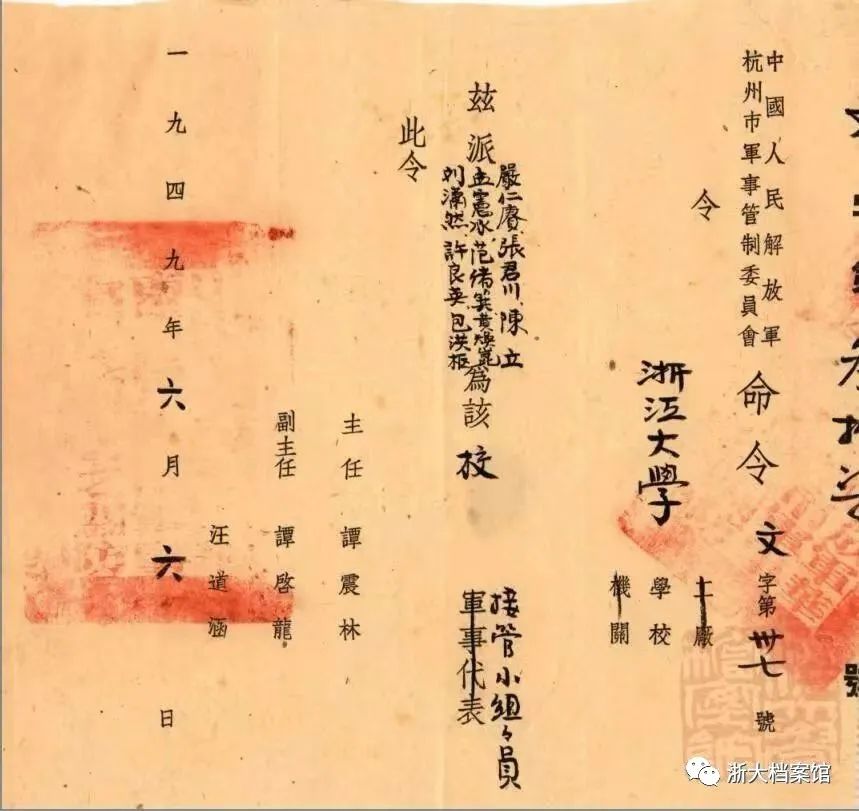 號
中國人民解放軍
杭州市軍事管制委員會
命令
文字第卅七號
令
浙江大學
工廠
學校
機關
兹派
嚴仁賡、張君川、陳立
孟憲承、范緒箕、黄焕焜
刘瀟然、許良英、包洪枢
爲該校
接管小組々員
軍事代表
此令
主任 譚震林
副主任 譚啓龍
汪道涵
一九四九年六月六日
浙大档案馆